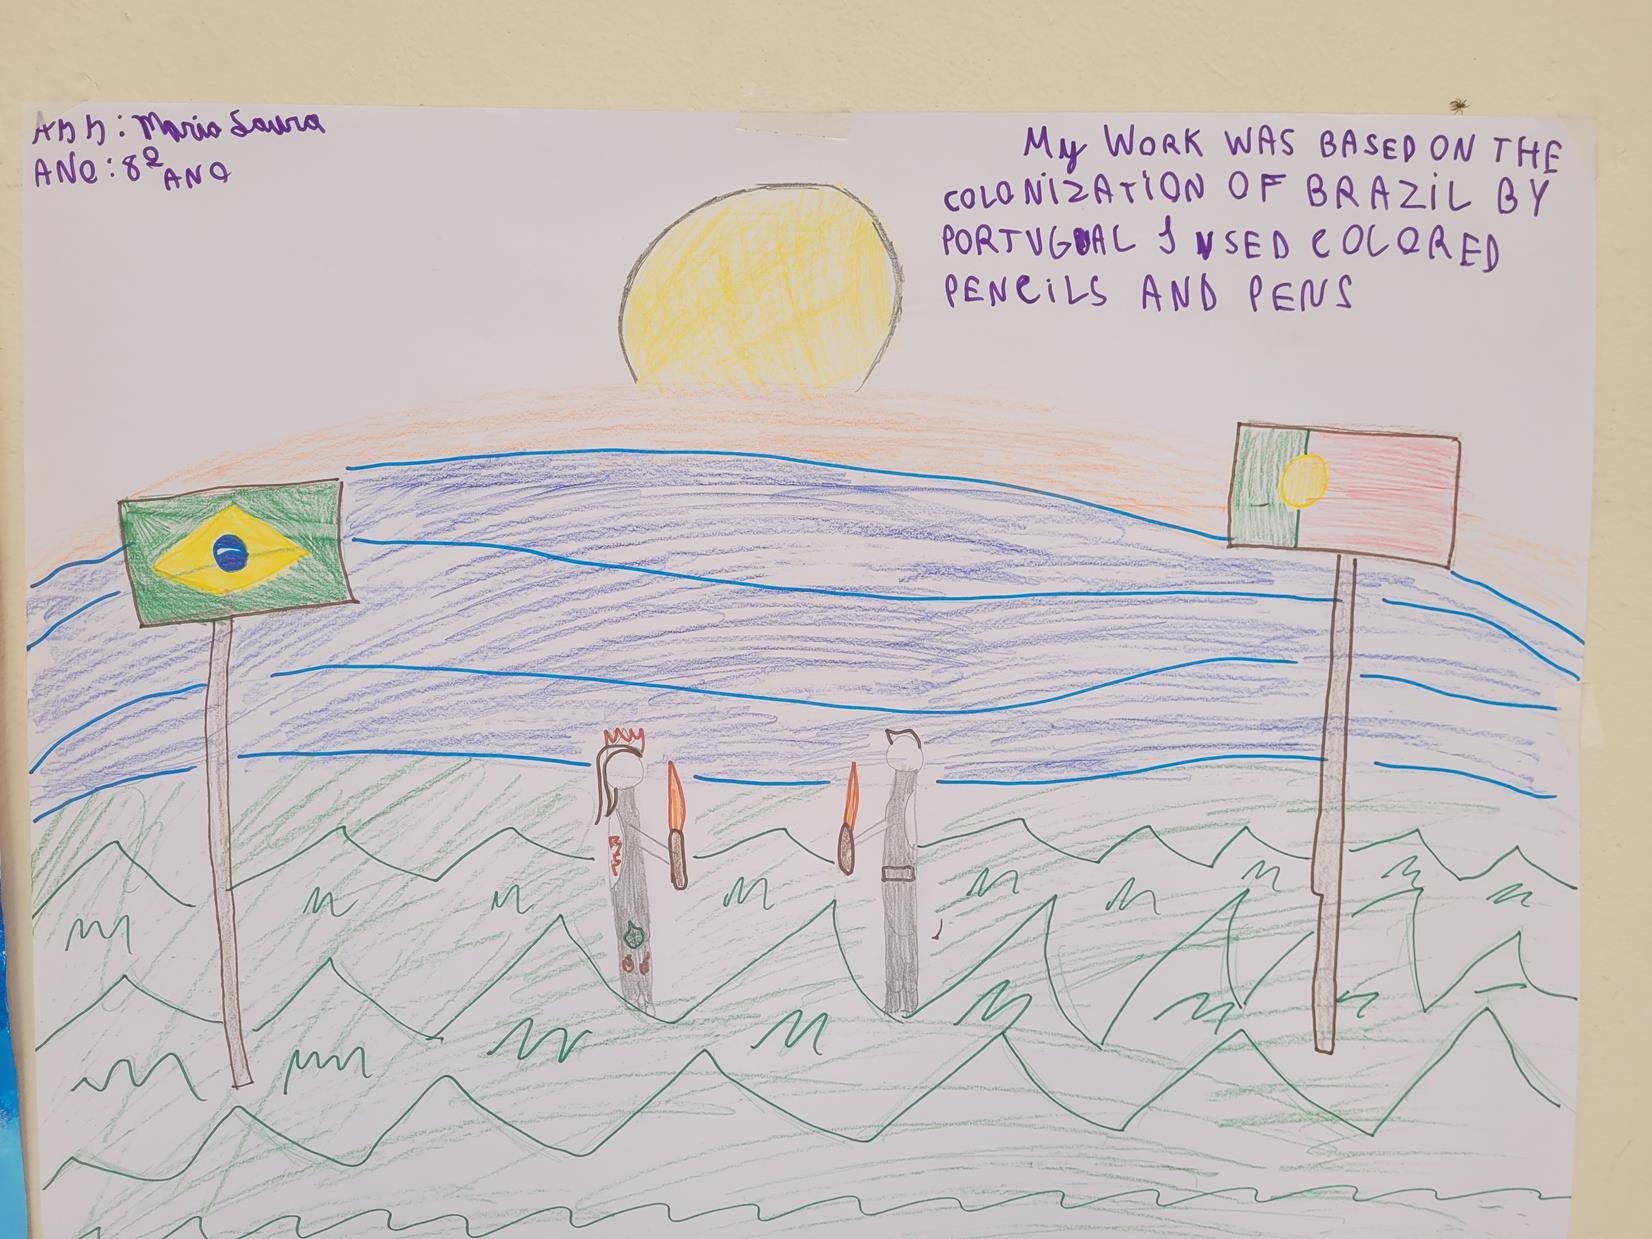 ANN: Maria Laura
ANO: 8º ANO
My WORK WAS BASED ON THE
COLONIZATION OF BRAZIL BY
PORTUGUAL I USED COLORED
PENCILS AND PENS